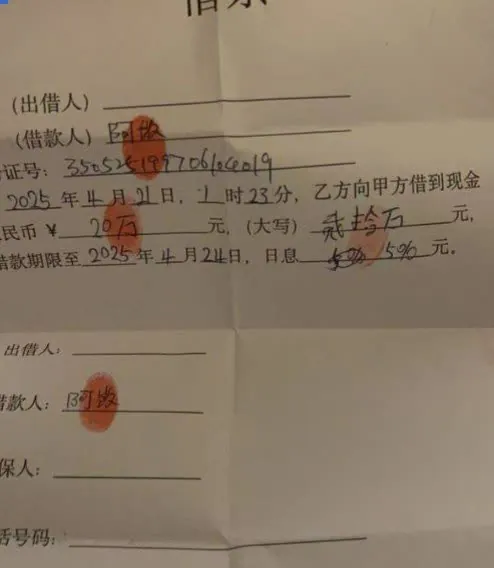 借条
(出借人)
(借款人) 阿敏
证号: 350525199706104019
2025 年 4 月 21 日, 1 时 23 分, 乙方向甲方借到现金
民币 ¥ 20万 元, (大写) 贰拾万 元,
借款期限至 2025 年 4 月 24 日, 日息 5% 元.
出借人:
借款人: 阿敏
保人:
话号码: